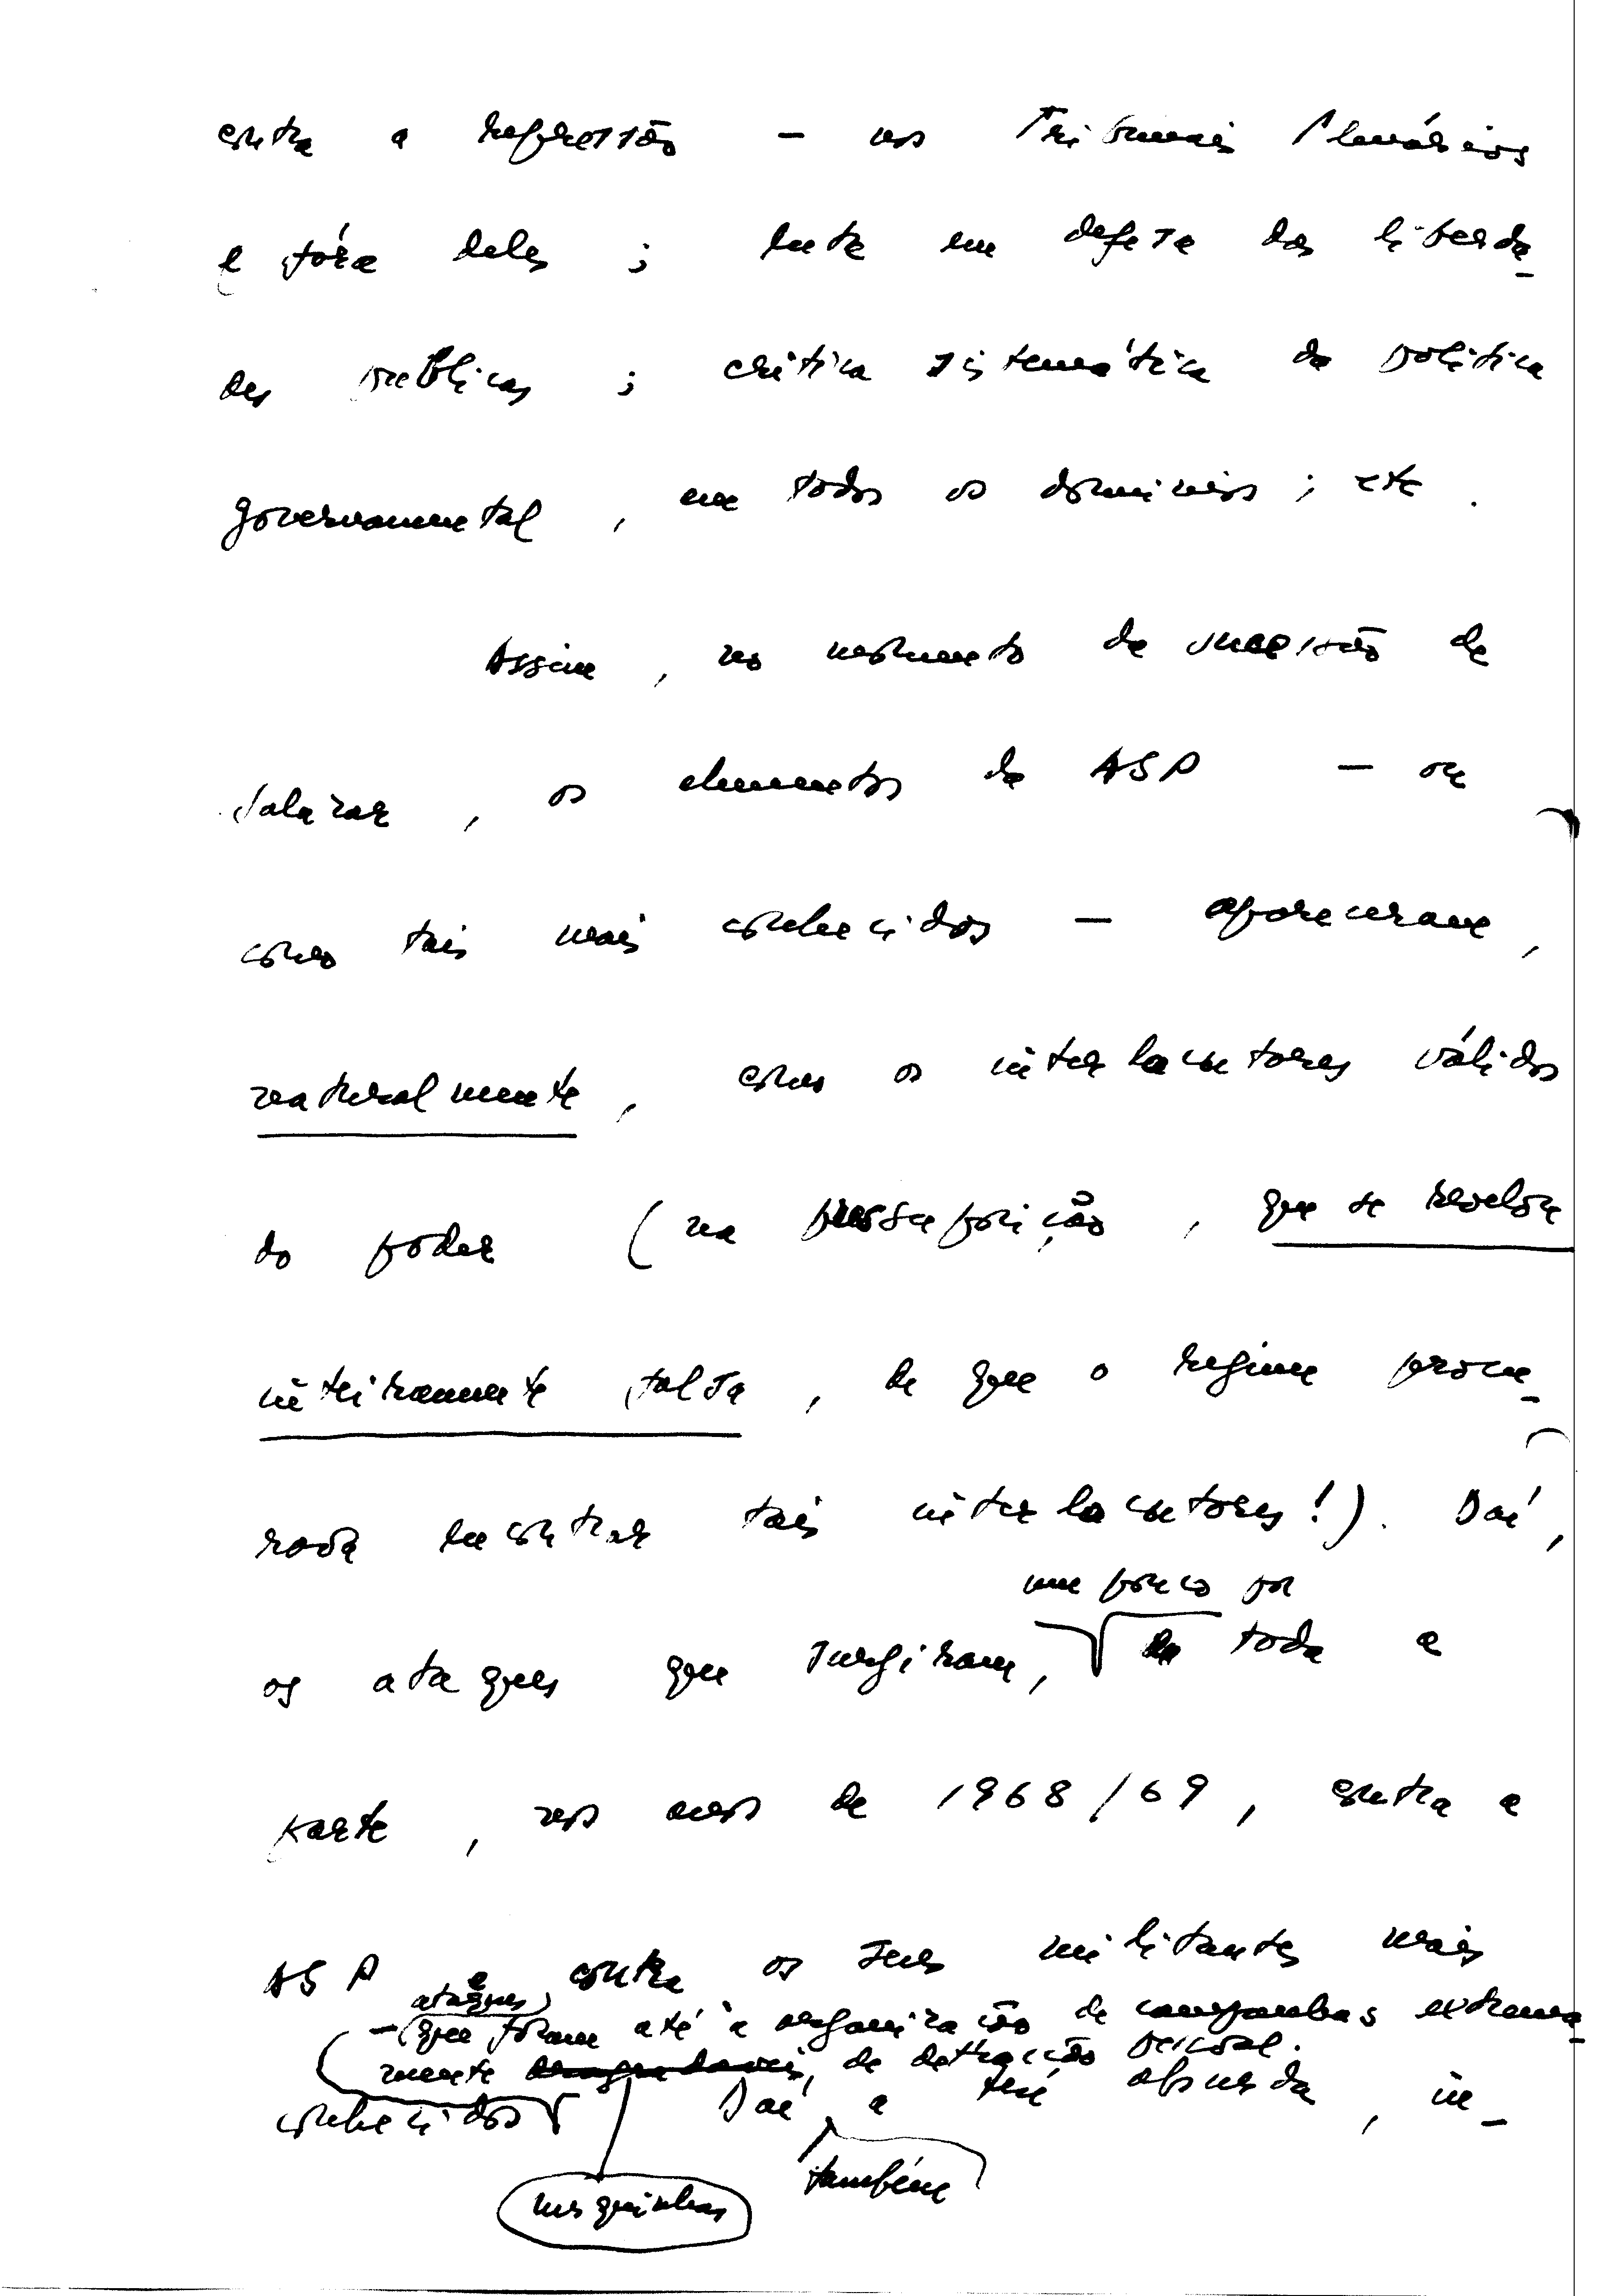 contra a repressão – nos Tribunais Plenários
e fóra deles ; luta em defesa das liberda-
des públicas ; crítica sistemática da política
governamental , em todos os domínios ; etc .
Assim , no momento da sucessão de
Salazar , os elementos da ASP – ou
como tais mais conhecidos – apareceram ,
naturalmente , como os interlocutores válidos
do poder ( na pressuposição , que se revelou
inteiramente falsa , de que o regime procu-
rava encontrar tais interlocutores ! ) . Daí ,
um pouco por
os ataques que surgiram , toda a
parte , nos anos de 1968/69 , contra a
ASP e contra os seus militantes mais
ataques
– que foram até à organização de campanhas extrema-
mente , de detracção pessoal .
conhecidos Daí a tese absurda , in-
também
mesquinhas